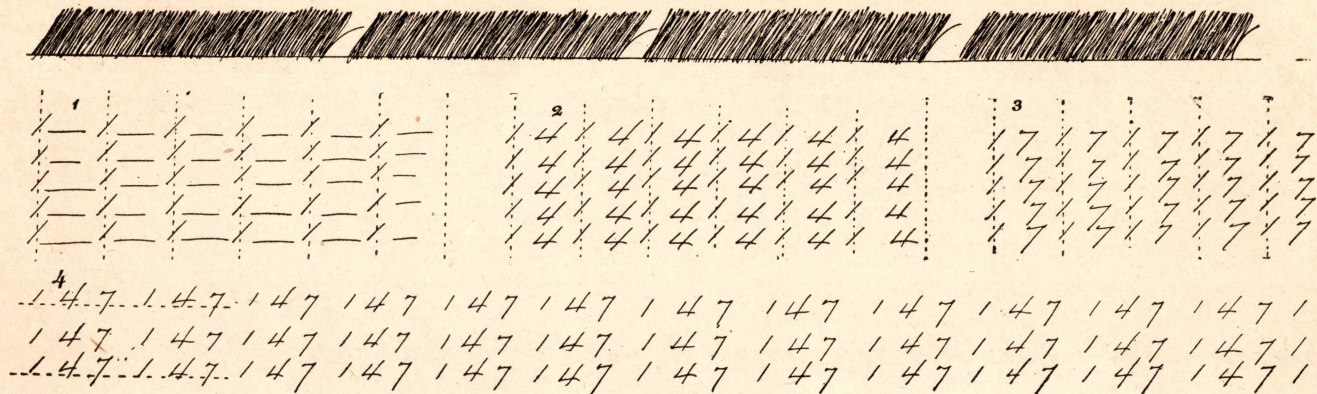 1
1 — 1 — 1 — 1 — 1 — 1 —
1 — 1 — 1 — 1 — 1 — 1 —
1 — 1 — 1 — 1 — 1 — 1 —
1 — 1 — 1 — 1 — 1 — 1 —
1 — 1 — 1 — 1 — 1 — 1 —
2
1 4 1 4 1 4 1 4 1 4 1 4
1 4 1 4 1 4 1 4 1 4 1 4
1 4 1 4 1 4 1 4 1 4 1 4
1 4 1 4 1 4 1 4 1 4 1 4
1 4 1 4 1 4 1 4 1 4 1 4
3
1 7 1 7 1 7 1 7 1 7
1 7 1 7 1 7 1 7 1 7
1 7 1 7 1 7 1 7 1 7
1 7 1 7 1 7 1 7 1 7
1 7 1 7 1 7 1 7 1 7
4
1 4 7 1 4 7 1 4 7 1 4 7 1 4 7 1 4 7 1 4 7 1 4 7 1 4 7 1 4 7 1 4 7 1 4 7 1
1 4 7 1 4 7 1 4 7 1 4 7 1 4 7 1 4 7 1 4 7 1 4 7 1 4 7 1 4 7 1 4 7 1 4 7 1
1 4 7 1 4 7 1 4 7 1 4 7 1 4 7 1 4 7 1 4 7 1 4 7 1 4 7 1 4 7 1 4 7 1 4 7 1